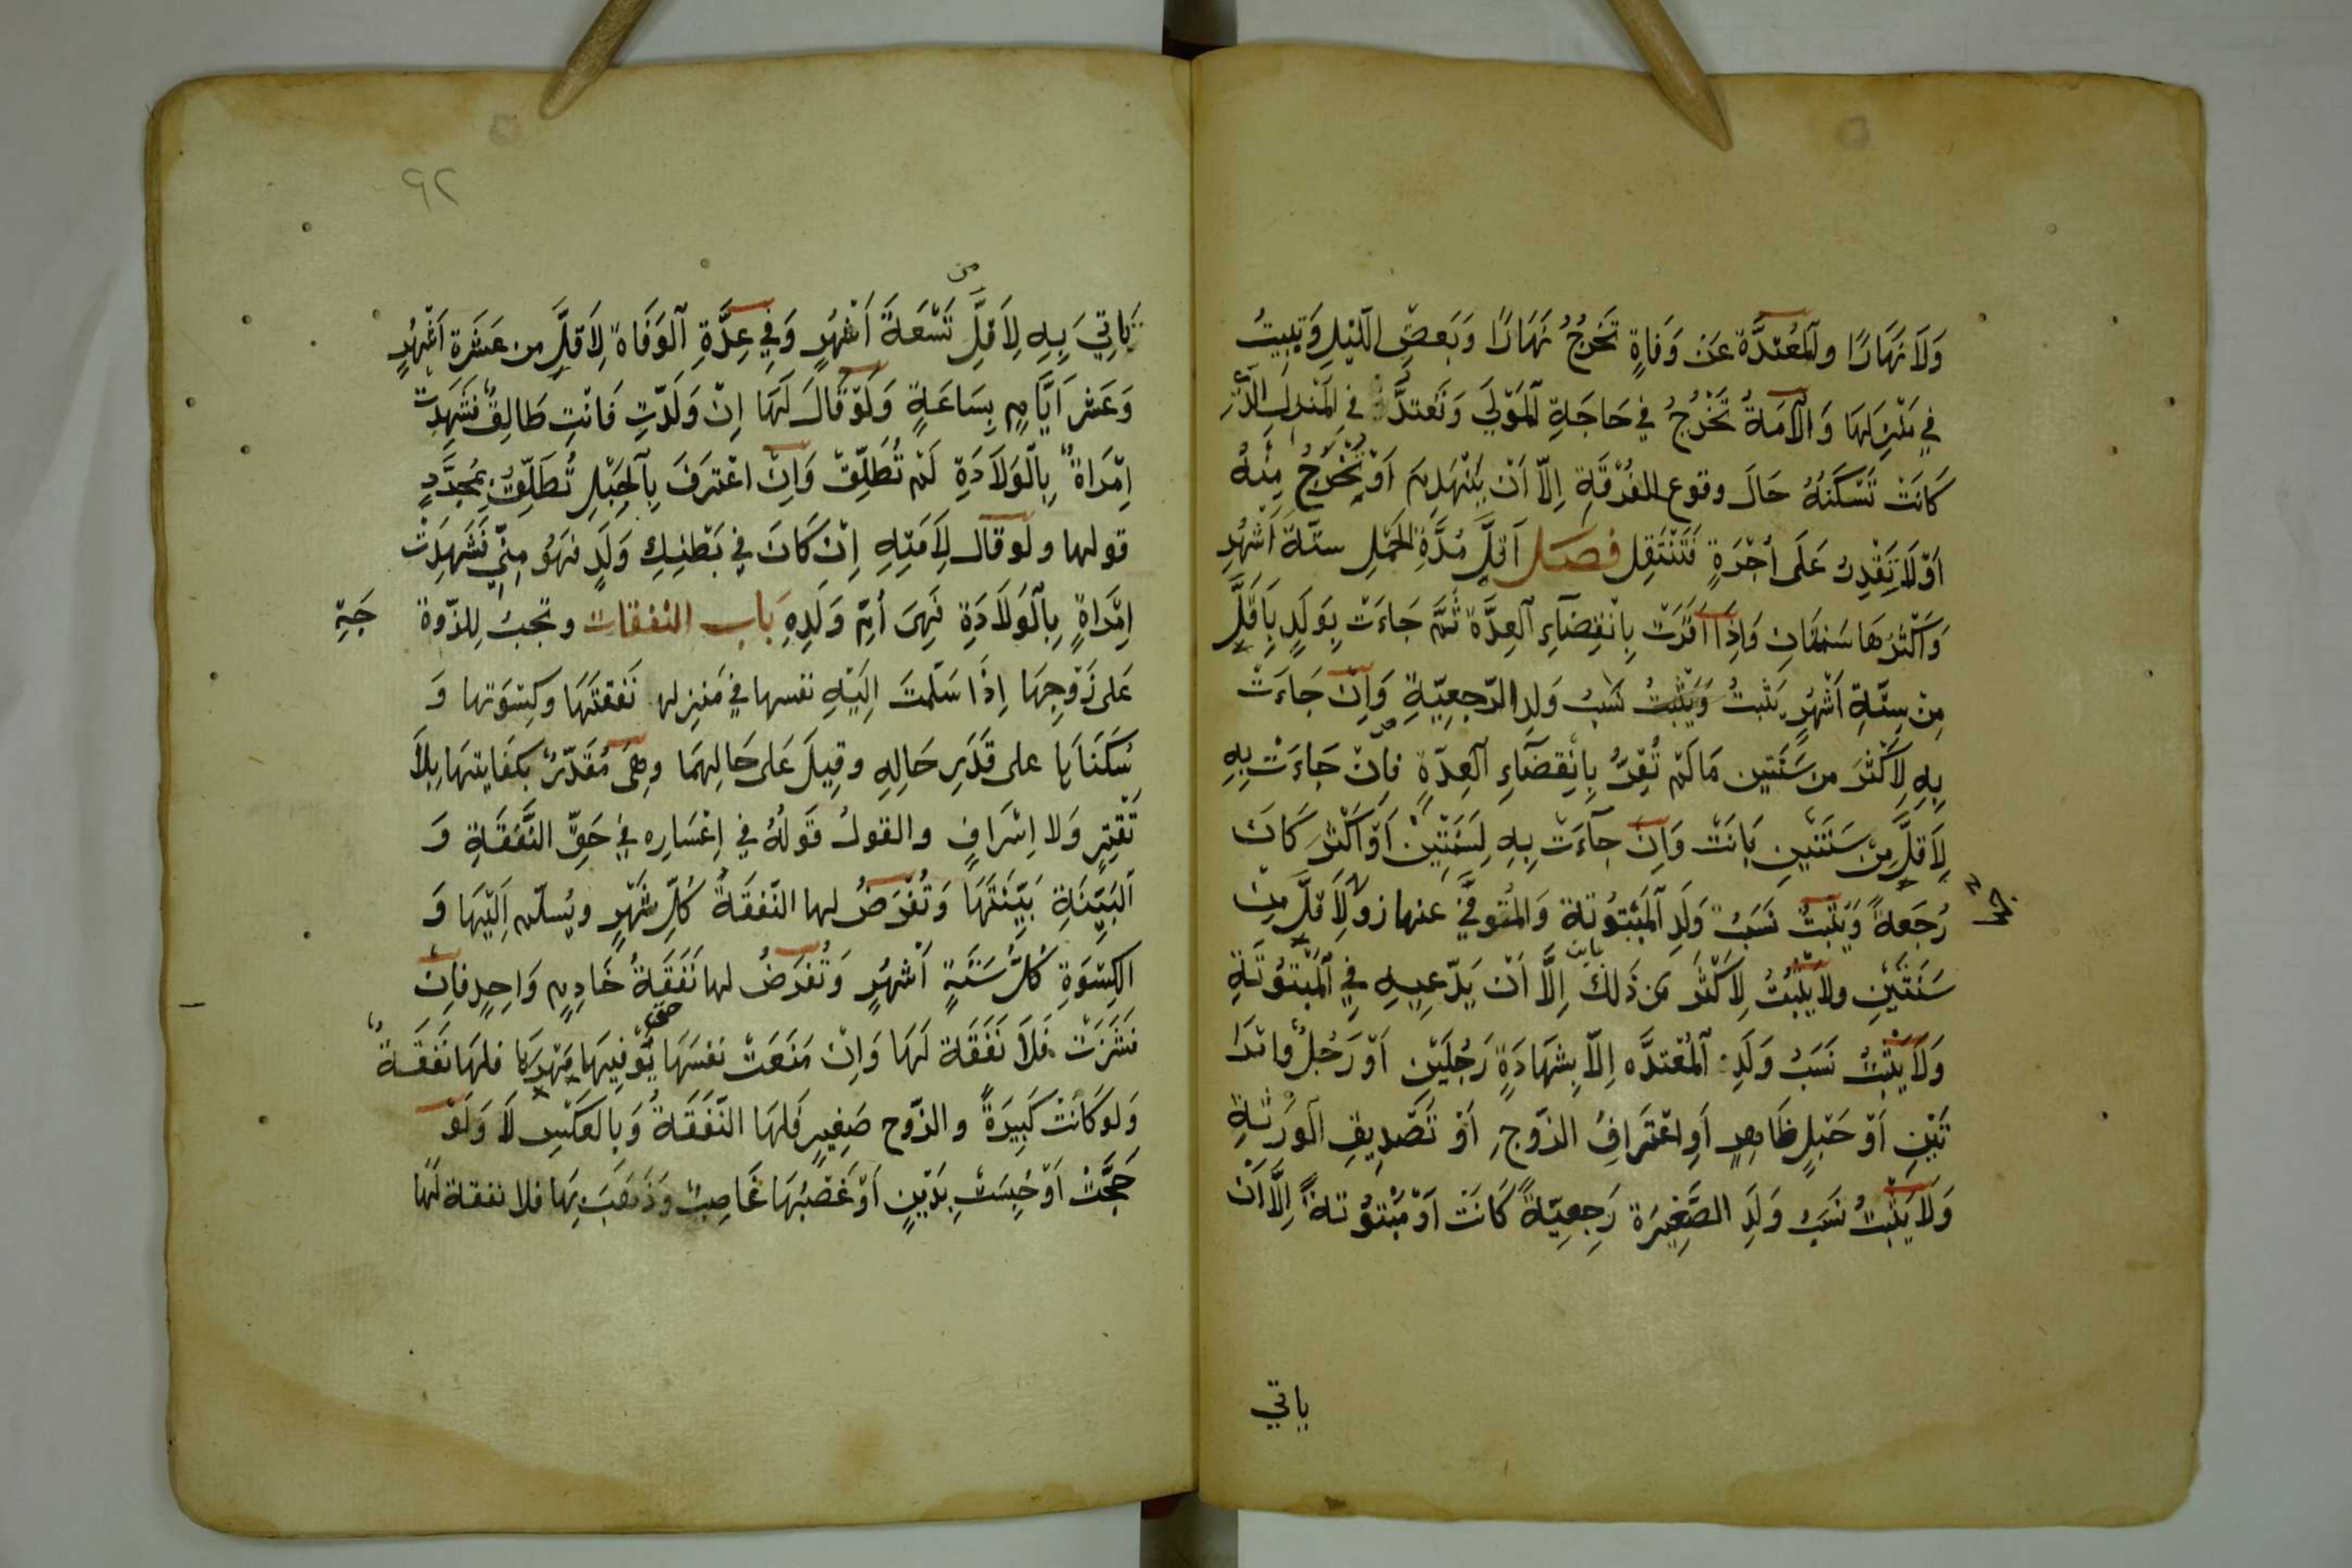 وَلَا نَهَارًا وَالْمُعْتَدَّة عَنْ وَفَاةٍ تَخرُجُ نَهَارًا وَبَعضَ اللّيْلِ وَتبِيتُ
فِي مَنْزِلهَا وَالْأَمَةُ تَخْرُجُ فِي حَاجَةِ الْمَوْلَى وَتَعتَدُّ فِي الْمَنْزِلِ الَّذِي
كَانَتْ تَسْكُنهُ حَالَ وقوع الفُرْقَةِ اِلّا اَنْ يَنْهَدِمَ اَوْ تُخْرَجُ مِنْهُ
اَوْ لَا تَقْدِرُ عَلَى اُجْرَةٍ فَتَنْتَقِل فصل اَقَلُّ مُدَّةِ الحَمْلِ ستّةُ اَشْهُرٍ
وَاَكْثَرُهَا سَنَتَانِ وَاِذَا اَقَرَّتْ بِاِنْقِضَاءِ الْعِدَّة ثُمَّ جَاءَتْ بِوَلَدٍ بِاَقَلَّ
مِنْ سِتَّةِ اَشْهُرٍ يَثْبتُ وَيَثْبتُ نَسَبُ وَلدِ الرّجعِيّةِ وَاِنْ جَاءَتْ
بِهِ لِاَكْثَرَ من سَنَتين مَا لَمْ تُقِرَّ بِاِنْقِضَاءِ الْعِدّةِ فاِنْ جَاءَتْ بِهِ
لِاَقلَّ مِنْ سَنَتَينِ بَانَتْ وَاِنْ جاءَتْ بِهِ لِسَنَتَيْنِ اَوْ اَكْثَرَ كَانَ
رُجَعةً وَيَثْبتُ نَسَبُ وَلَدِ الْمَبْتُوتة وَالمُتَوفَّى عنها زو لِاَقلَّ مِنْ
سَنَتَيْنِ ولا يَثْبُتُ لِاَكْثَرَ مِن ذَلكَ اِلَّا اَنْ يَدّعِيهِ فِي الْمَبْتُوتَةِ
وَلَا يَثْبتُ نَسَبُ وَلَدِ الْمُعْتدَّه اِلّا بِشهَادَةِ رَجُلَيْنِ اَوْ رَجُلٌ وامْرَا
تَيْنِ اَوْ حَبَلٍ ظَاهِرٍ اَوِ اعْتَرَافُ الزّوْجِ اَوْ تَصْدِيقِ الْوَرَثَةِ
وَلَا يَثْبتُ نسَبُ وَلَدِ الصَّغِيرَة رَجعِيّةً كَانَتْ اَوْ مَبْتُوتةً اِلَّا اَنْ
ياتي
٩٢
من
يَاتِيَ بِهِ لِاَقلِّ تَسْعَةَ اَشْهُرٍ وَفِي عِدَّةِ الْوَفَاة لِاَقلِّ من عَشَرَة اَشْهُرٍ
وَعَشْرِ اَيَّامٍ بِسَاعَةٍ وَلَوْ قَالَ لَهَا اِنْ وَلَدْتِ فَانْتِ طَالِقٌ فَشَهِدَتْ
اِمْرَاةٌ بِالْوَلَادَةِ لَمْ تُطَلّقْ وَاِنْ اعْتَرَفَ بِالْحَبَلِ تُطَلّقُ بِمُجَرَّدِ
قولها ولَو قال لِاَمَتِهِ اِنْ كَانَ فِي بَطْنِكِ وَلَدٌ فهَوُ مِنّي فَشَهِدَتْ
اِمْرَاةٍ بِالْوَلَادَةِ فَهِىَ اُمّ وَلَدِهِ بَاب النفقات وتجبُ لِلزّوة جَةِ
عَلى زَوْجِهَا اِذَا سَلّمتَ اِلَيْهِ نفسها فِي مَنزِله نَفَقَتُهَا وكِسْوَتها وَ
سُكْنَاهَا على قَدَرِ حَالِهِ وقِيلَ عَلى حَالِهِمَا وهِىَ مُقَدّرٌ بكفَايتهَا بِلَا
تَقْتِيرٍ وَلا اِسْرَافٍ والقولُ قَولهُ فِي اِعْسَارِه فِي حَقِّ النَّفَقَةِ وَ
الْبَيِّنَةِ بَيِّنَتُهَا وَتُفْرَضُ لها النّفقَةُ كُلِّ شَهْرٍ ويُسلّم اَلَيْهَا وَ
الكِسْوَةِ كُلَّ سَتَةٍ اَشْهُرٍ وَتُفرَضُ لها نَفَقَةُ خَادِمٍ وَاحِدٍ فاِنْ
نَشَزَتْ فَلَا نَفَقَة لَهَا وَاِنْ مَنَعَتْ نفسَهَا حتى يُوْفِيهَا مَهْرهَا فلهَا نَفَقَةٌ
وَلو كَانَتْ كَبِيرَةً والزّوج صَغِيرٍ فَلهَا النّفَقَةُ وَبالعَكْسِ لَا وَلَوْ
حَجَّتْ اَوْ حُبِسَتْ بِدَيْنٍ اَوْ غَصْبُهَا غَاصِبٌ وَذَهَبَ بِهَا فلا نفقة لَهَا